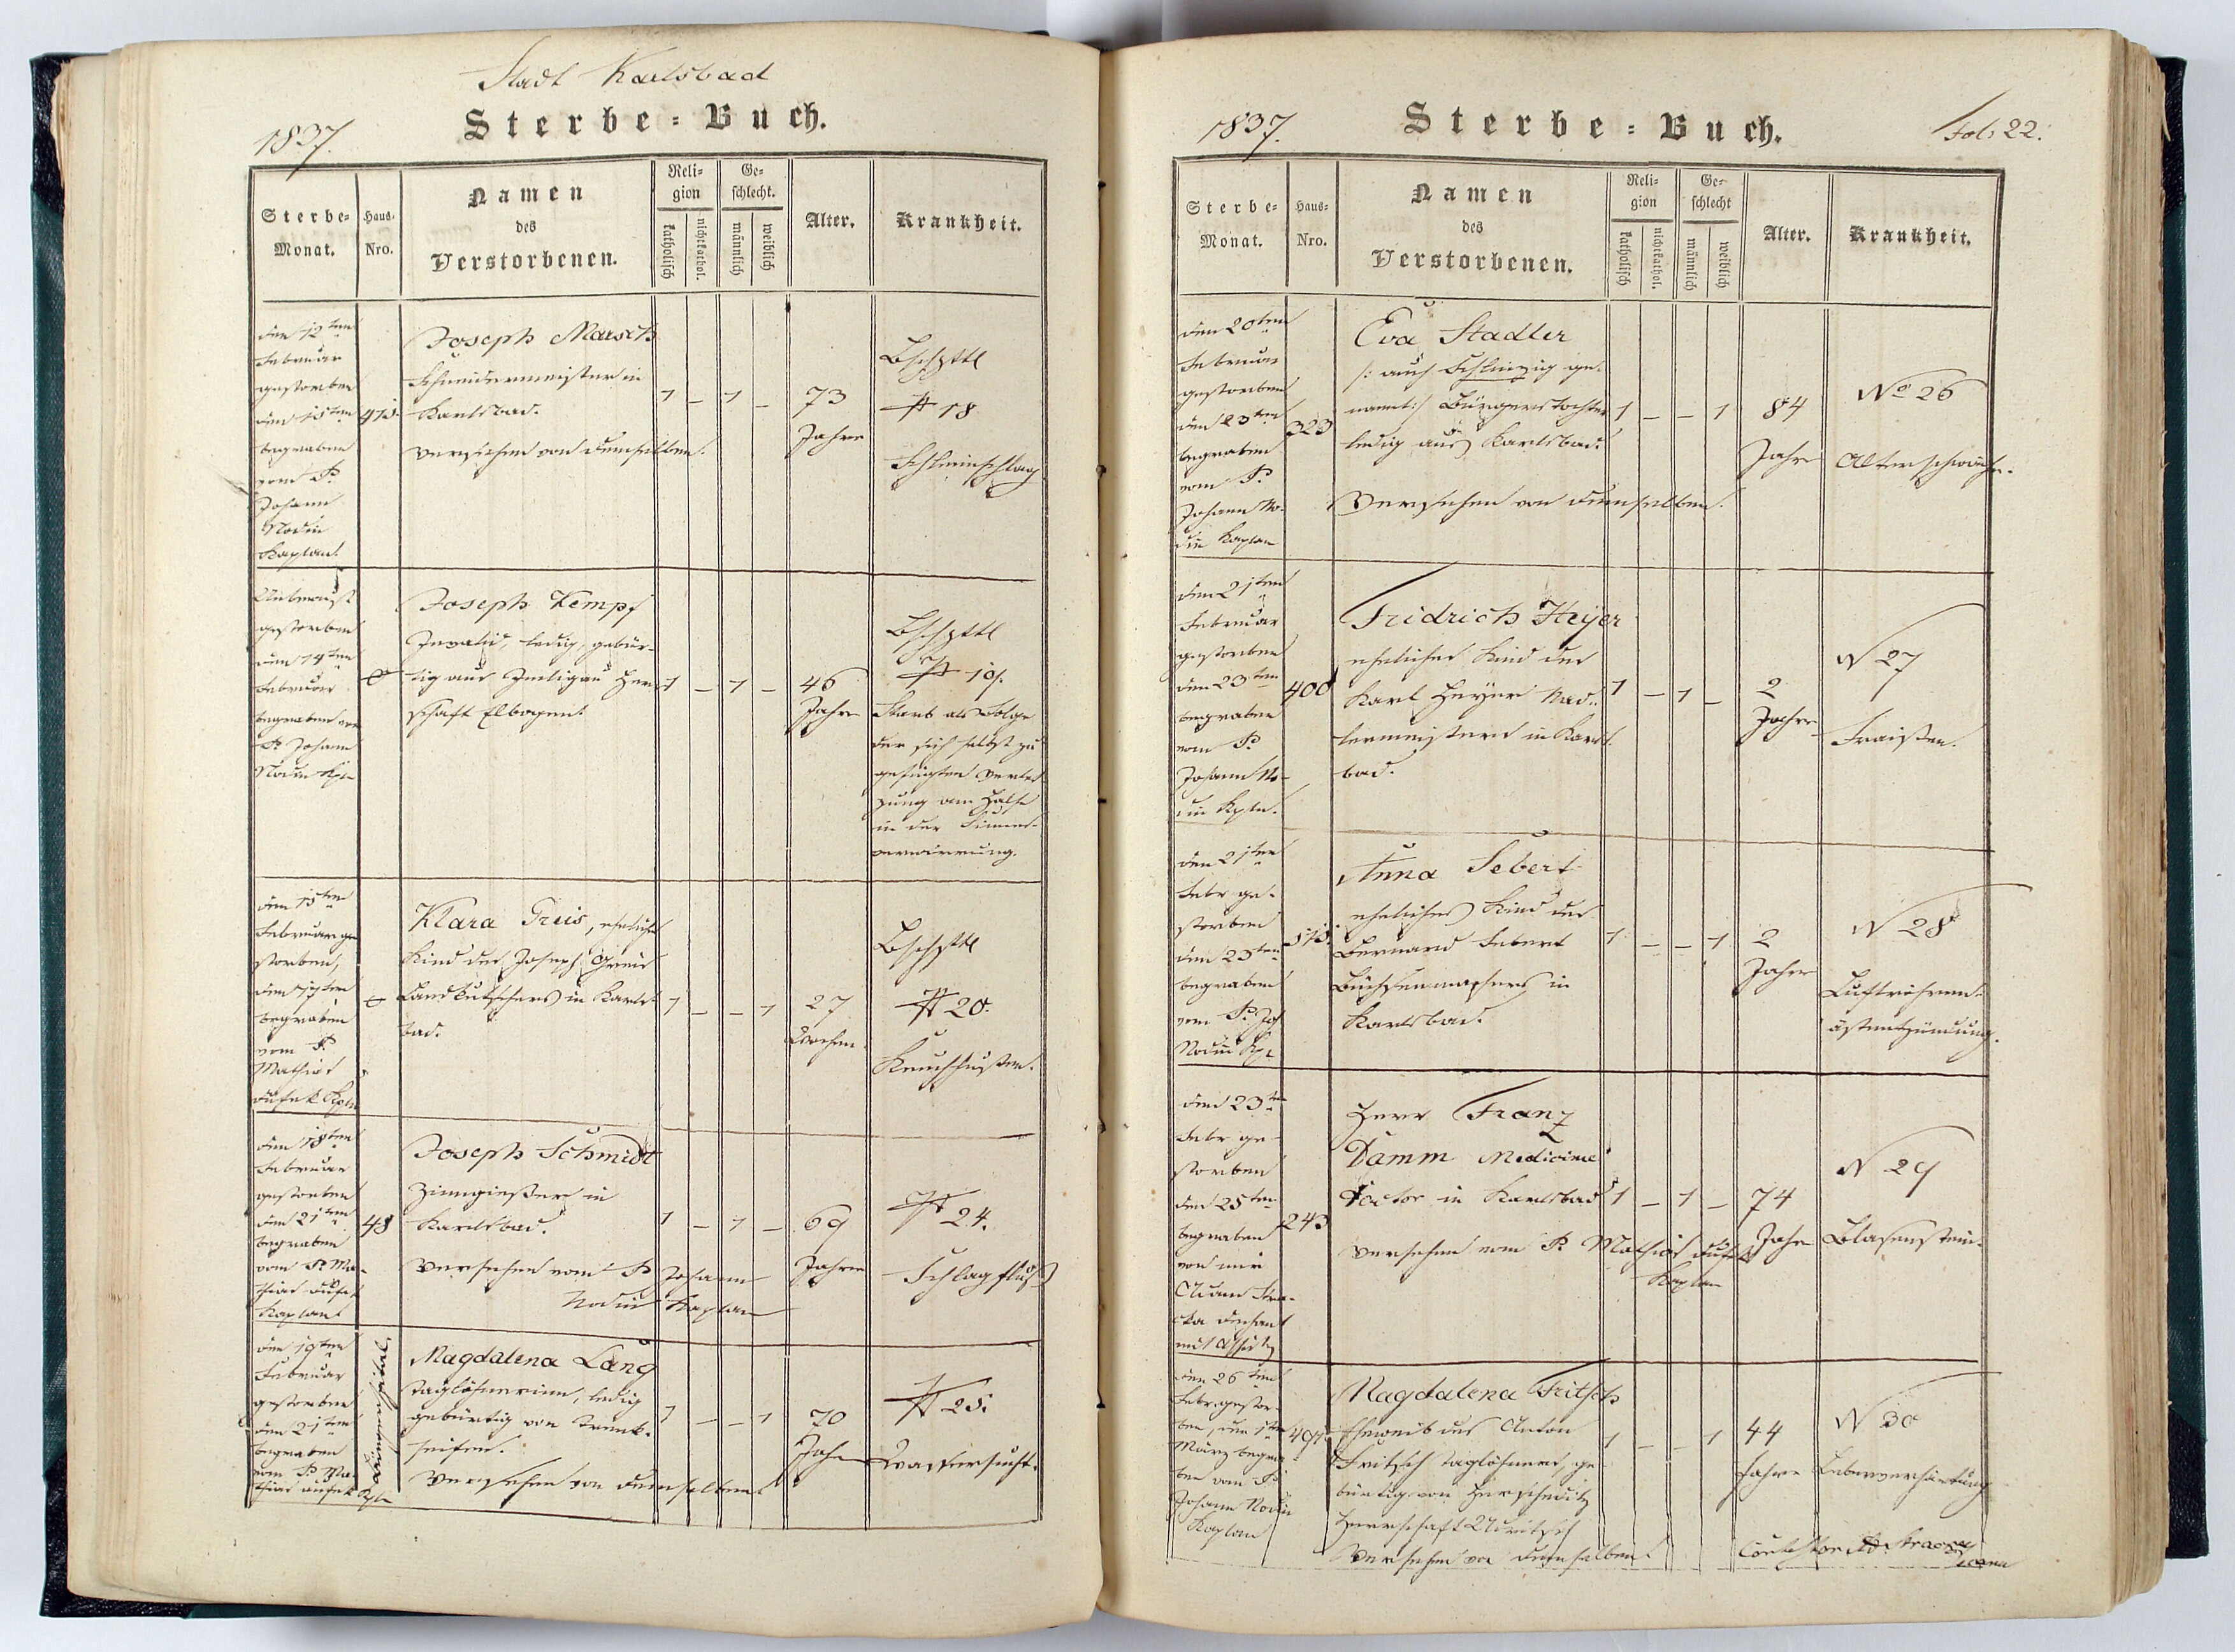 Stadt Karlsbad
1837.
Sterbe-Buch.
Sterbe-
Monat.
Haus-
Nro.
Namen
des
Verstorbenen.
Reli-
gion
katholisch
nichtkathol.
Ge-
schlecht.
männlich
weiblich
Alter.
Krankheit.
den 12ten
Februar
gestorben
den 15ten
begraben
vom P.
Johann
Kaplan.
415.
Joseph Marsch
Schneidermeister in
Karlsbad.
versehen von demselben.
1 – 1 –
73
Jahre
№ 18
Schleimschlag
gestorben
den 14ten
Februar
begraben vom
P. Johann
Joseph Kempf
Invalid, ledig, gebür-
tig aus Herr-
schaft Elbogen.
1 – 1 –
46
Jahre
№ 19.
Starb als Folge
der sich selbst zu
gefügten Verlet
zung am Halse
in der Sinnes-
verwirrung.
den 15ten
Februar ge
storben,
den 17ten
begraben
vom P.
Mathias
Dusek Kpln
Klara Greis, eheliches
Kind des Joseph Greis
Landkutschers in Karls-
bad.
1 – – 1
27
Wochen.
№ 20.
Keuchhusten.
den 18ten
Februar
gestorben
den 21ten
begraben
vom P. Ma-
thias Dusek
Kaplan
48
Joseph Schmidt
Zinngießer in
Karlsbad.
versehen vom P. Johann
Kaplan
1 – 1 –
69
Jahre
№ 24.
Schlagfluß
den 19ten
Februar
gestorben
den 21ten
begraben
vom P. Ma-
thias Dusek Kpln
Magdalena Lang
Taglöhnerinn, ledig
gebürtig von Trink-
seifen.
Versehen von demselben.
1 – – 1
70
Jahre
№ 25.
Wassersucht.
1837.
Sterbe-Buch.
Fol: 22.
Sterbe-
Monat.
Haus-
Nro.
Namen
des
Verstorbenen.
Reli-
gion
katholisch
nichtkathol.
Ge-
schlecht
männlich
weiblich
Alter.
Krankheit.
den 20ten
Februar
gestorben
den 23ten
begraben
vom P.
Johann No-
Kaplan
323
Eva Stadler
/: auch Schlinzig ge-
nannt:/ Bürgerstochter
ledig aus Karlsbad.
Versehen von demselben.
1 – – 1
84
Jahre
No 26
Altersschwäche.
den 21ten
Februar
gestorben
den 23ten
begraben
vom P.
Johann No-
Kpln.
400
Fridrich Heyer
eheliches Kind des
Karl Heyer Nad-
lermeisters in Karls-
bad.
1 – 1 –
2
Jahre
N 27
Fraisen.
den 21ten
Febr ge-
storben
den 23ten
begraben
vom P. Joh
515.
Anna Sebert
eheliches Kind des
Bernard Sebert
Büchsenmachers in
Karlsbad.
1 – – 1
2
Jahre
N 28
Luftröhren-
ästentzündung.
den 23ten
Febr ge-
storben
den 25ten
begraben
von mir
mit Assistz
243
Herr Franz
Damm Medicinae
Doctor in Karlsbad
versehen vom P. Mathias Dusek
Kaplan
1 – 1 –
74
Jahre
N 29
Blasenstein.
den 26ten
Febr. gestor-
ben, den 1ten
März begra-
ben vom P.
Johann
Kaplan
Magdalena Fritsch
Eheweib des Anton
Fritsch Taglöhners, ge-
bürtig von
Herrschaft
Versehen von demselben.
1 – – 1
44
Jahre
N 30
Leberverhärtung